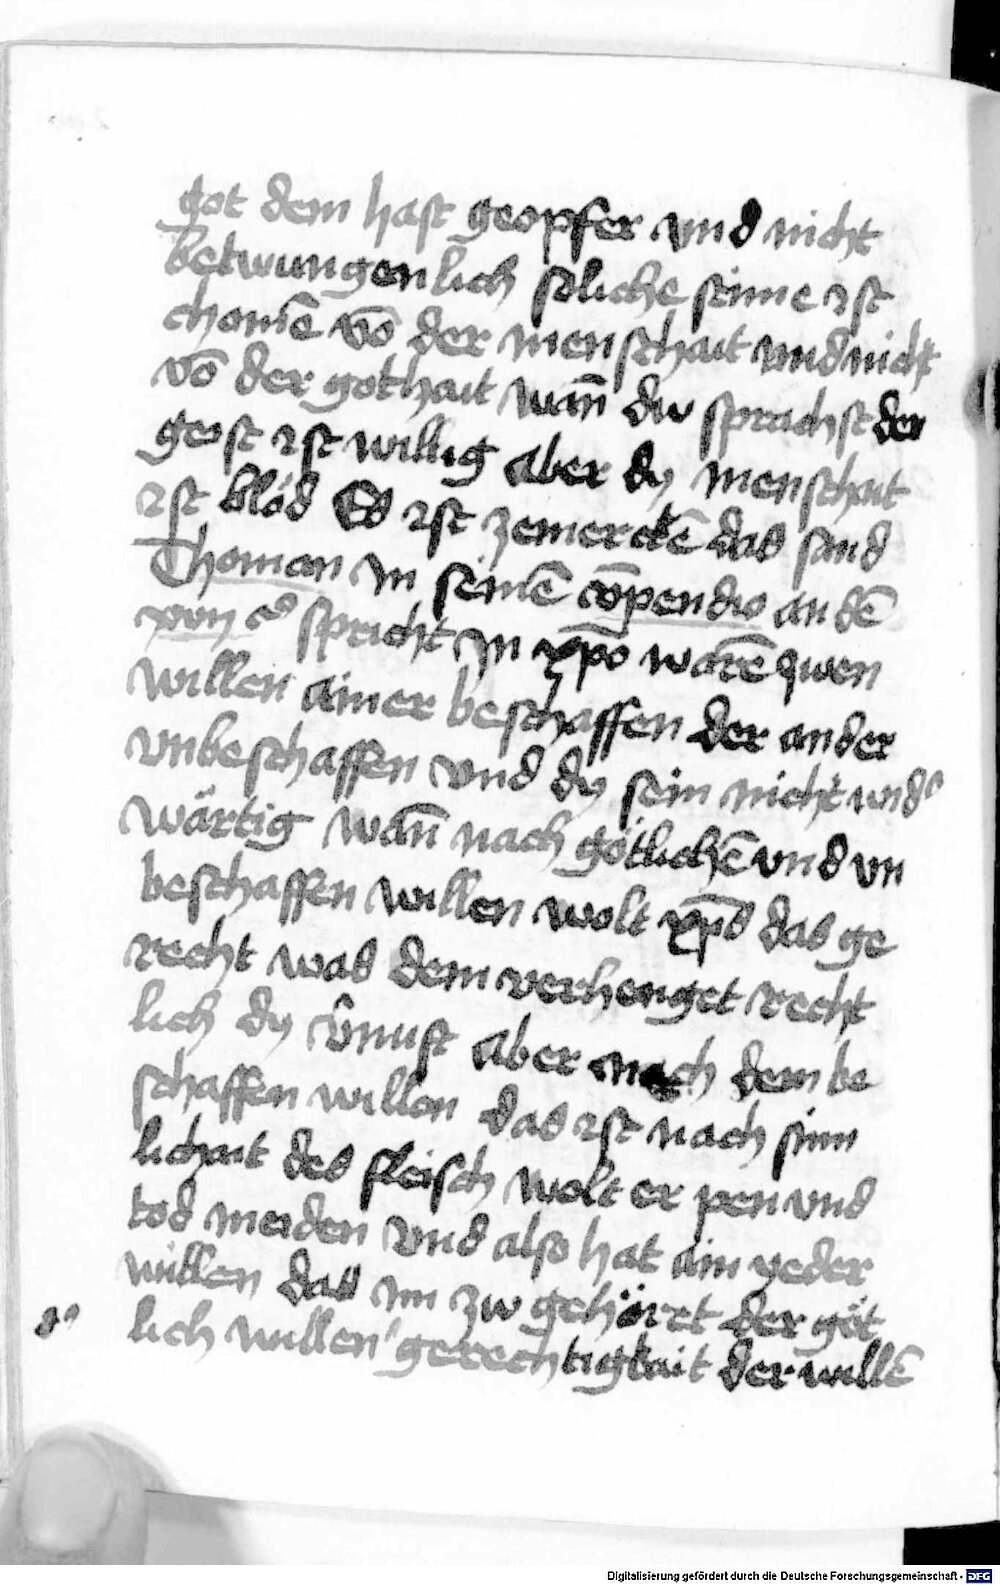 got dem hast geopfer vnd nicht
betwungenlich soliche stime ist
chomē vō der menschait vnd nicht
vō der gothait wañ dw sprachst der
geist ist willig aber dy menschait
ist blöd Es ist zemerckē das sand
Thoman in seinē cōpendio an dē
spricht in xp̄o warē zwen
willen ainer beschaffen der ander
vnbeschaffen vnd dy sein nicht wid᾽
wärtig wañ nach götlichē vnd vn
beschaffen willen wolt xp̄s das ge
recht was dem verhenget recht
lich dy v̂nuft aber nach dem be
schaffen willen das ist nach sinn
lichait des fleisch wolt er pen vnd
tod meiden vnd also hat ain yeder
willen das im zw gehöret der göt
lich willen gerechtigkait der willē
Digitalisierung gefördert durch die Deutsche Forschungsgemeinschaft - DFG